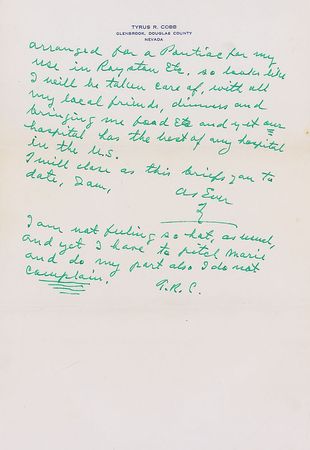 TYRUS R. COBB
GLENBROOK, DOUGLAS COUNTY
NEVADA
arranged for a Pontiac for my
use in Royston Etc. so looks like
I will be taken care of, with all
my local friends, dinners and
bringing me food Etc and yet our
hospital has the best of any hospital
in the U.S.
I will close as this briefs you to
date, I am,
As Ever
Ty
I am not feeling so hot, as usual,
and yet I have to Marie
and do my part also I do not
complain.
T.R.C.